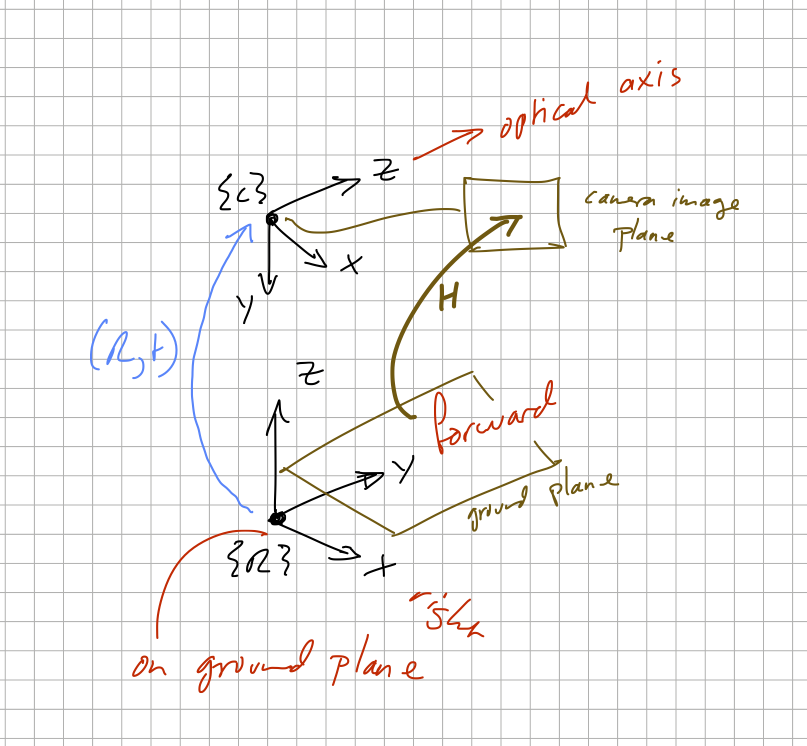 optical axis
Z
{C}
camera image
plane
X
Y
H
(R,t)
Z
forward
Y
ground plane
{R}
X
on ground plane